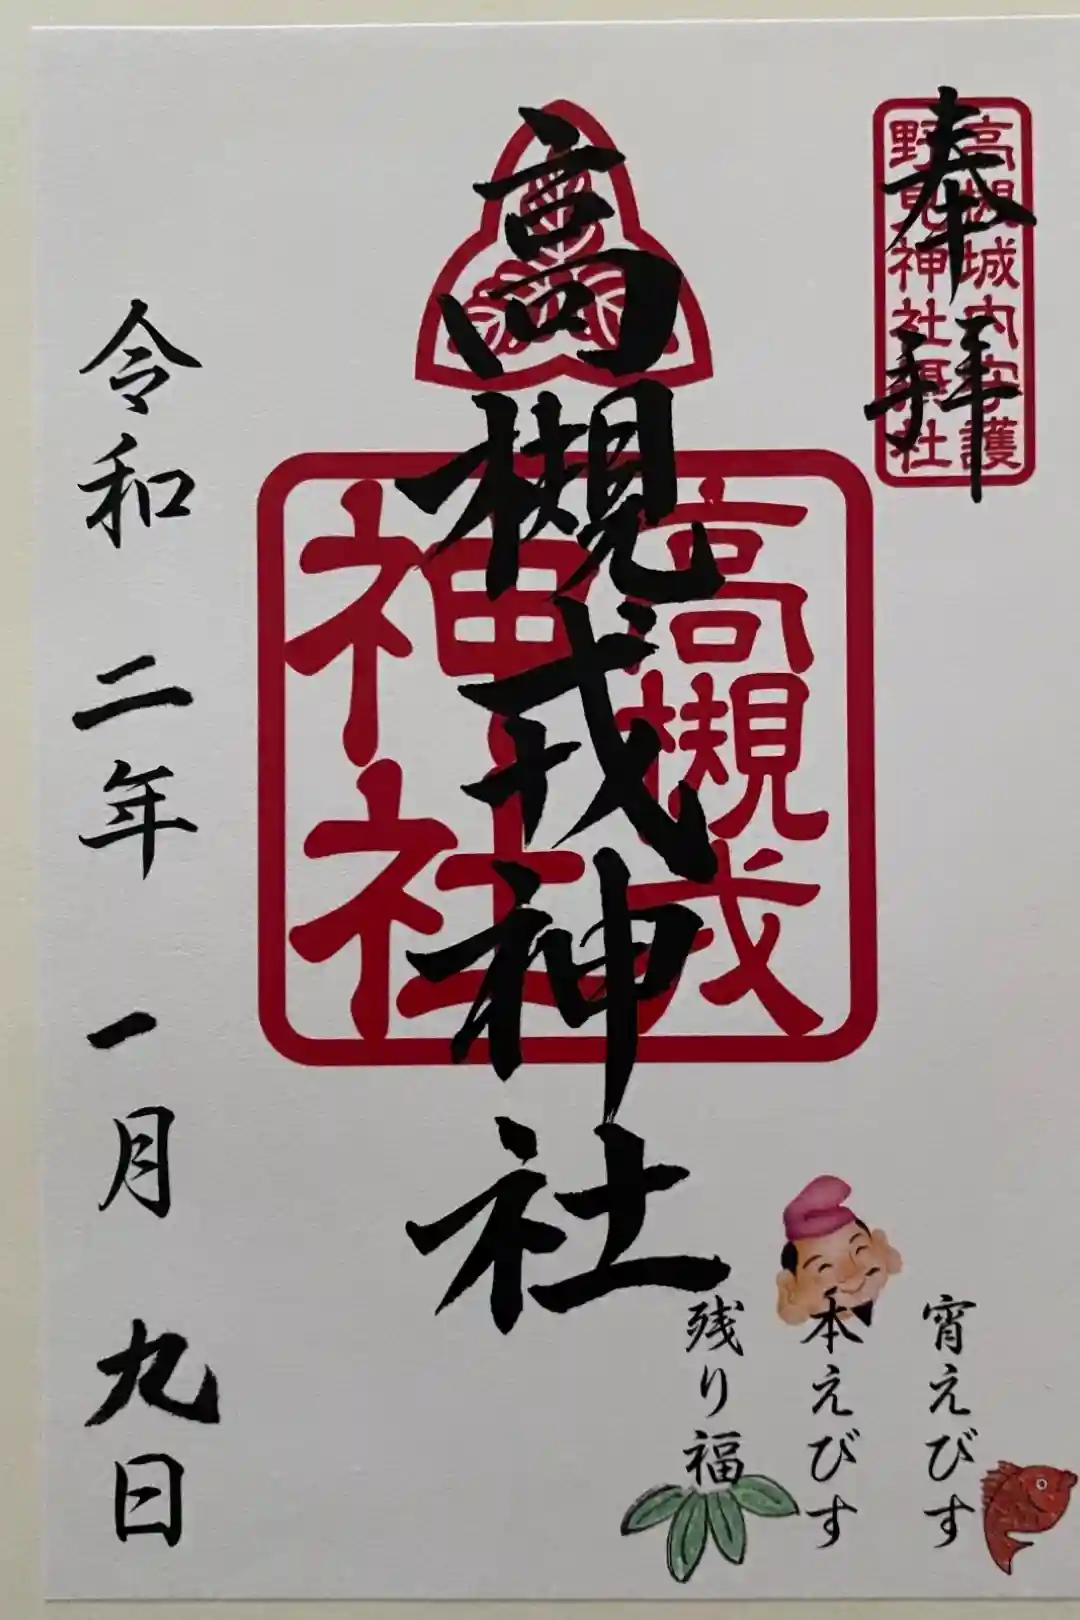 奉拝
高槻城内守護
野見神社摂社
高槻戎神社
高槻戎
神社
令和二年一月九日
宵えびす
本えびす
残り福